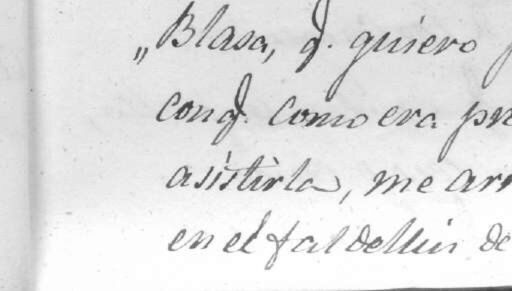 „Blasa, q. quiero
conq. como era pre
asistirla, me arr
en el faldellin de